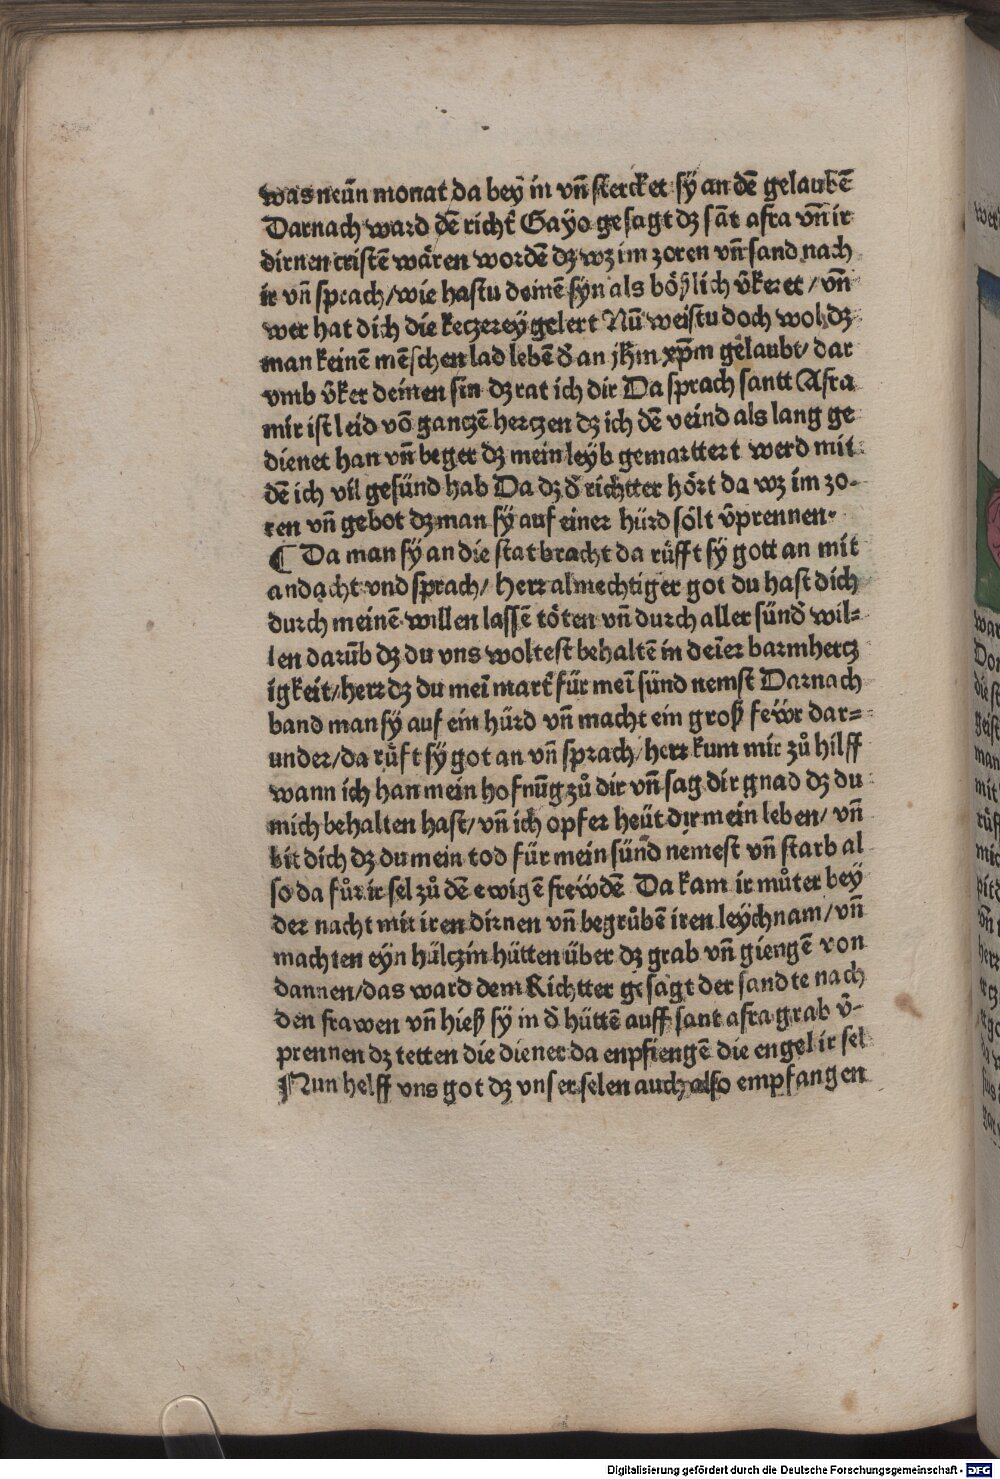 was neün monat da beÿ in vñ sterck et sÿ an dē gelaubē
Darnach ward dē richt̃ Gayo gesagt dz sāt afra vñ ir
dirnen cristē wären wordē dz wz im zoren vñ sand nach
ir vñ sprach/wie hastu deinē syn als bößlich v̄keret/vñ
wer hat dich die ketzereÿ gelert Nū weistu doch wol dz
man keinē mēschen lad lebē d̄ an jhm̄ xp̄m gelaubt/dar
vmb v̄ker deinen sin dz rat ich dir Da sprach santt Afra
mir ist leid vō gantzē hertzen dz ich dē veind als lang ge
dienet han vñ beger dz mein leÿb gemarttert werd mit
dē ich vil gesünd hab Da dz d̄ richtter hört da wz im zo-
ren vñ gebot dz man sÿ auf einer hürd sölt v̄prennen.
¶ Da man sÿ an die stat bracht da rüfft sÿ gott an mit
andacht vnd sprach/herr almechtiger got du hast dich
durch meinē willen lassē töten vñ durch aller sünd̄ wil=
len darūb dz du vns woltest behaltē in deīer barmhertz
igkeit/herr dz du meī mart̃ für meī sünd nemst Darnach
band man sÿ auf ein hürd vñ macht ein groß feẅr dar=
under/da rüft sÿ got an vñ sprach/herr kum mir zů hilff
wann ich han mein hofnūg zů dir vñ sag dir gnad dz du
mich behalten hast/vñ ich opfer heüt dir mein leben/vñ
bit dich dz du mein tod für mein sünd nemest vñ starb al
so da fůr ir sel zů dē ewigē freẅdē Da kam ir můter beÿ
der nacht mit iren dirnen vñ begrůbē iren leÿchnam/vñ
machten eÿn hültzin hütten über dz grab vñ giengē von
dannen/das ward dem Richtter gesagt der sandte nach
den frawen vñ hieß sÿ in d̄ hüttē auff sant afra grab v̄-
prennen dz tetten die diener da enpfiengē die engel ir sel
Nun helff vns got dz vnser selen auch also empfangen
Digitalisierung gefördert durch die Deutsche Forschungsgemeinschaft - DFG